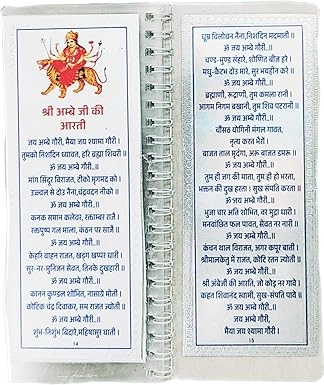 श्री अम्बे जी की
आरती
जय अम्बे गौरी, मैया जय श्यामा गौरी ।
तुमको निशिदिन ध्यावत, हरि ब्रह्मा शिवरी
ॐ जय अम्बे गौरी..
मांग सिंदूर विराजत, टीको मृगमद को ।
उज्ज्वल से दोउ नैना, चंद्रवदन नीको
ॐ जय अम्बे गौरी..
कनक समान कलेवर, रक्ताम्बर राजै ।
रक्तपुष्प गल माला, कंठन पर साजै
ॐ जय अम्बे गौरी..
केहरि वाहन राजत, खड्ग खप्पर धारी ।
सुर-नर-मुनिजन सेवत, तिनके दुखहारी
ॐ जय अम्बे गौरी..
कानन कुण्डल शोभित, नासाग्रे मोती ।
कोटिक चंद्र दिवाकर, सम राजत ज्योती
ॐ जय अम्बे गौरी..
शुंभ-निशुंभ बिदारे, महिषासुर घाती ।
14
धूम्र विलोचन नैना, निशदिन मदमाती
ॐ जय अम्बे गौरी..
चण्ड-मुण्ड संहारे, शोणित बीज हरे ।
मधु-कैटभ दोउ मारे, सुर भयहीन करे
ॐ जय अम्बे गौरी..
ब्रह्माणी, रूद्राणी, तुम कमला रानी ।
आगम निगम बखानी, तुम शिव पटरानी
ॐ जय अम्बे गौरी..
चौंसठ योगिनी मंगल गावत,
नृत्य करत भैरों ।
बाजत ताल मृदंगा, अरू बाजत डमरू
ॐ जय अम्बे गौरी..
तुम ही जग की माता, तुम ही हो भरता,
भक्तन की दुख हरता । सुख संपति करता
ॐ जय अम्बे गौरी..
भुजा चार अति शोभित, वर मुद्रा धारी ।
मनवांछित फल पावत, सेवत नर नारी
ॐ जय अम्बे गौरी..
कंचन थाल विराजत, अगर कपूर बाती ।
श्रीमालकेतु में राजत, कोटि रतन ज्योती
ॐ जय अम्बे गौरी..
श्री अंबेजी की आरति, जो कोइ नर गावे ।
कहत शिवानंद स्वामी, सुख-संपति पावे
ॐ जय अम्बे गौरी..
जय अम्बे गौरी,
मैया जय श्यामा गौरी ।
15